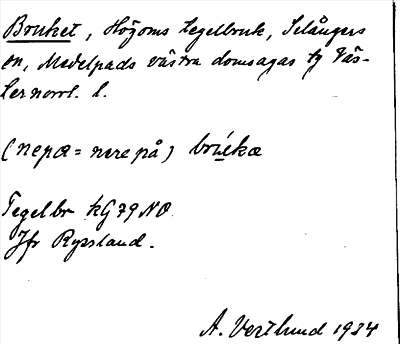 Bruket, Högoms tegelbruk, Selångers
sn, Medelpads västra domsagas tg Väs-
ternorrl. l.
(nepæ = nere på)
Tegelbr kG79NO
Jfr Ryssland.
A. Vestlund 1934